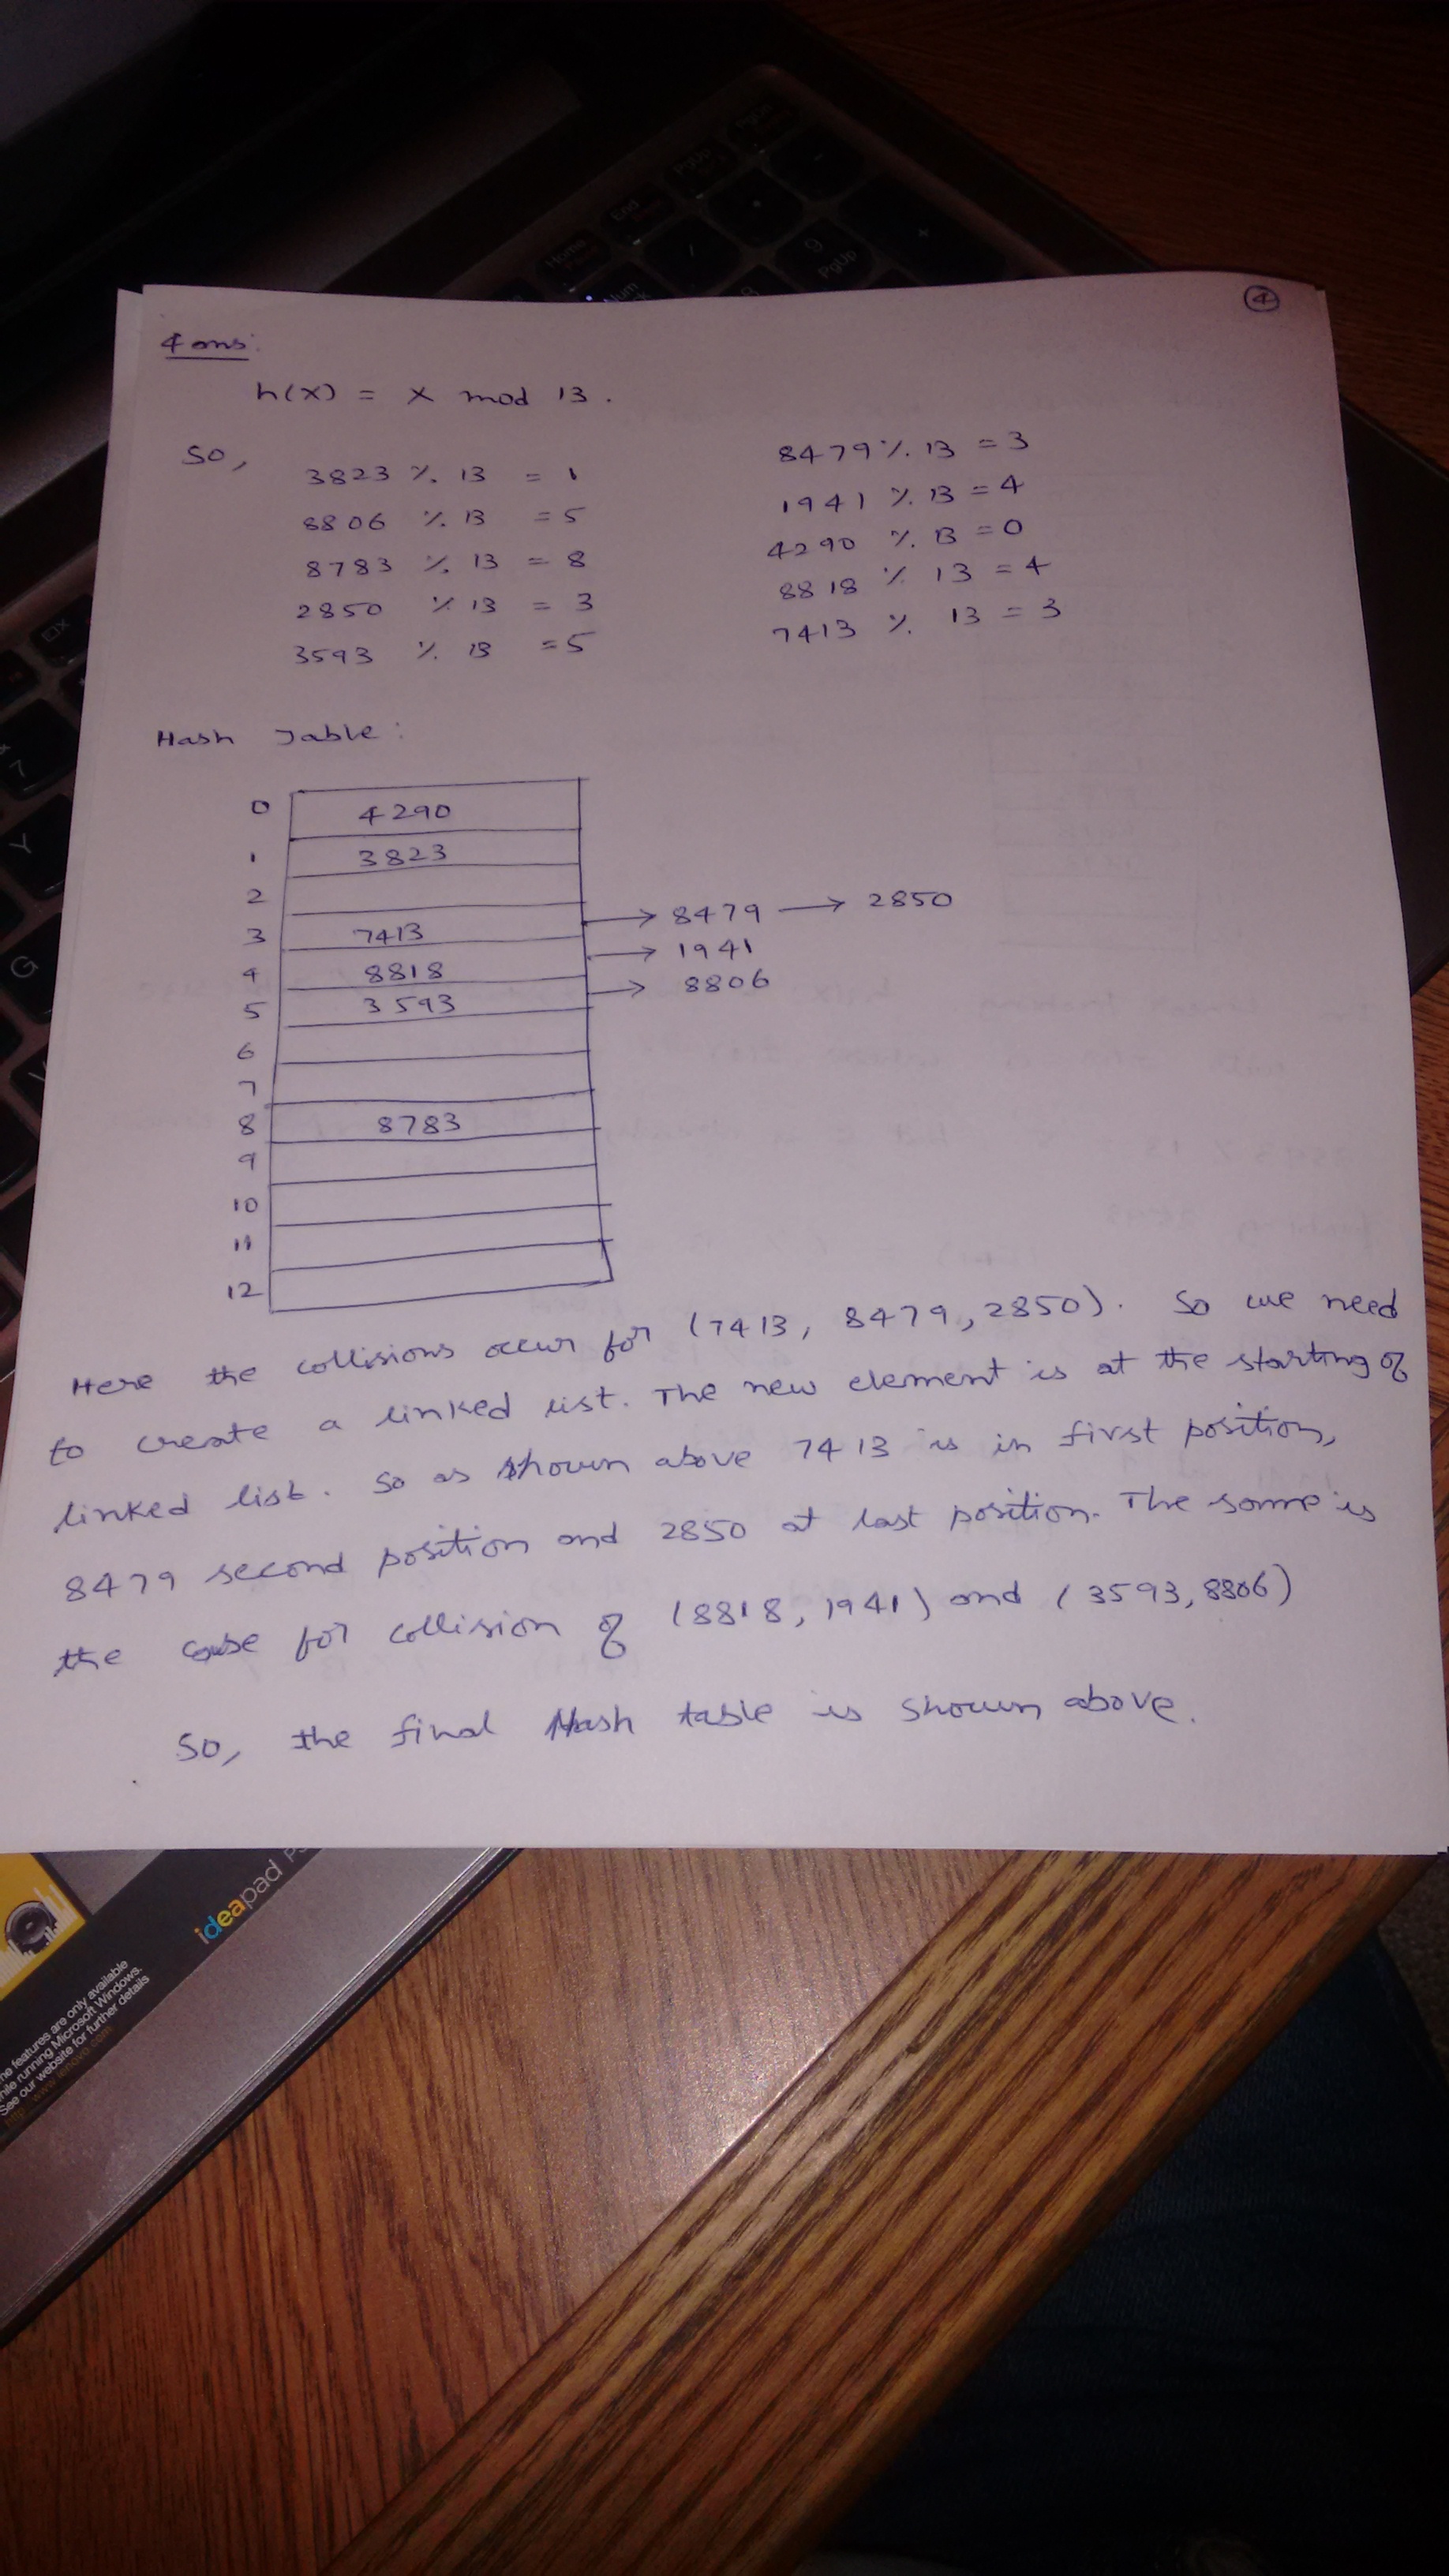 4
4 ans:
h(x) = x mod 13.
So,
3823 % 13 = 1
8806 % 13 = 5
8783 % 13 = 8
2850 % 13 = 3
3593 % 13 = 5
8479 % 13 = 3
1941 % 13 = 4
4290 % 13 = 0
8818 % 13 = 4
7413 % 13 = 3
Hash Table:
0 4290
1 3823
2
3 7413 → 8479 → 2850
4 8818 → 1941
5 3593 → 8806
6
7
8 8783
9
10
11
12
Here the collisions occur for (7413, 8479, 2850). So we need
to create a linked list. The new element is at the starting of
linked list. So as shown above 7413 is in first position,
8479 second position and 2850 at last position. The same is
the case for collision of (8818, 1941) and (3593, 8806)
So, the final Hash table is shown above.
ideapad
features are only available
running Microsoft Windows.
See our website for further details
www.lenovo.com
Home
End
PgUp
PgUp
Num
9
PgUp
8
7
Y
G